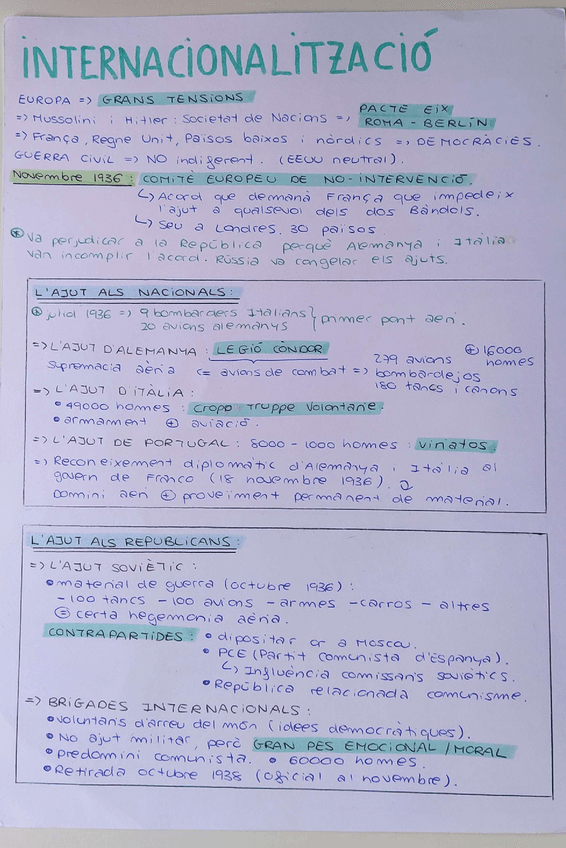 INTERNACIONALITZACIÓ
EUROPA => GRANS TENSIONS
=> Mussolini i Hitler: Societat de Nacions => PACTE - EIX ROMA - BERLÍN
=> França, Regne Unit, Països baixos i nòrdics => DEMOCRÀCIES.
GUERRA CIVIL => NO indiferent. (EEUU neutral).
Novembre 1936: COMITÈ EUROPEU DE NO-INTERVENCIÓ.
↳ Acord que demanà França que impedeix
l'ajut a qualsevol dels dos Bàndols.
↳ Seu a Londres. 30 països.
* Va perjudicar a la República perquè Alemanya i Itàlia
van incomplir l'acord. Rússia va congelar els ajuts.
L'AJUT ALS NACIONALS:
* juliol 1936 => 9 bombarders Italians } primer pont aeri.
20 avions alemanys
=> L'AJUT D'ALEMANYA: LEGIÓ CÒNDOR 279 avions ⊕ 16000 homes
supremacia aèria <= avions de combat => bombardejos
180 tancs i canons
=> L'AJUT D'ITÀLIA:
• 49000 homes: Cropo Truppe Volontarie.
• armament ⊕ aviació.
=> L'AJUT DE PORTUGAL: 8000 - 1000 homes: vinatos.
=> Reconeixement diplomàtic d'Alemanya i Itàlia al
govern de Franco (18 novembre 1936).
Domini aeri ⊕ proveïment permanent de material.
L'AJUT ALS REPUBLICANS:
=> L'AJUT SOVIÈTIC:
• material de guerra (octubre 1936):
- 100 tancs - 100 avions - armes - carros - altres
⊜ certa hegemonia aèria.
CONTRAPARTIDES: • dipositar or a Moscou.
• PCE (Partit comunista d'Espanya).
↳ Influència comissaris soviètics.
• República relacionada comunisme.
=> BRIGADES INTERNACIONALS:
• voluntaris d'arreu del món (idees democràtiques).
• No ajut militar, però GRAN PES EMOCIONAL / MORAL
• predomini comunista. • 60000 homes.
• Retirada octubre 1938 (oficial al novembre).